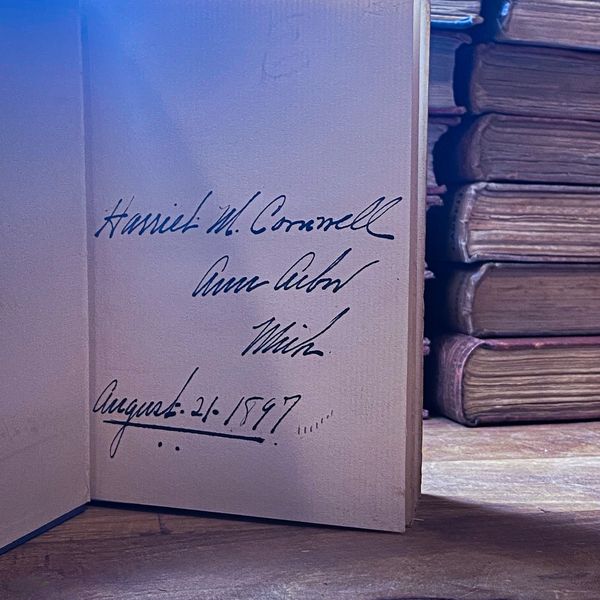 Harriet M. Cornwell
Ann Arbor
Mich.
August. 21. 1897